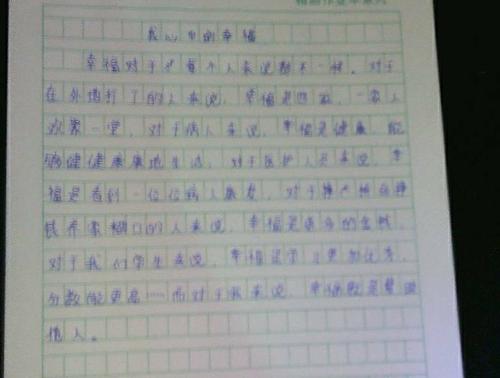 我心中的幸福
幸福对于每个人来说都不一样。对于
在外地打工的人来说，幸福是回家，一家人
欢聚一堂，对于病人来说，幸福是健康，能
够健健康康地生活，对于医护人员来说，幸
福是看到一位位病人康复，对于
钱养家糊口的人来说，幸福是更多的金钱，
对于我们学生来说，幸福是学习更加优秀，
分数能更高……而对于我来说，幸福就是
他人。